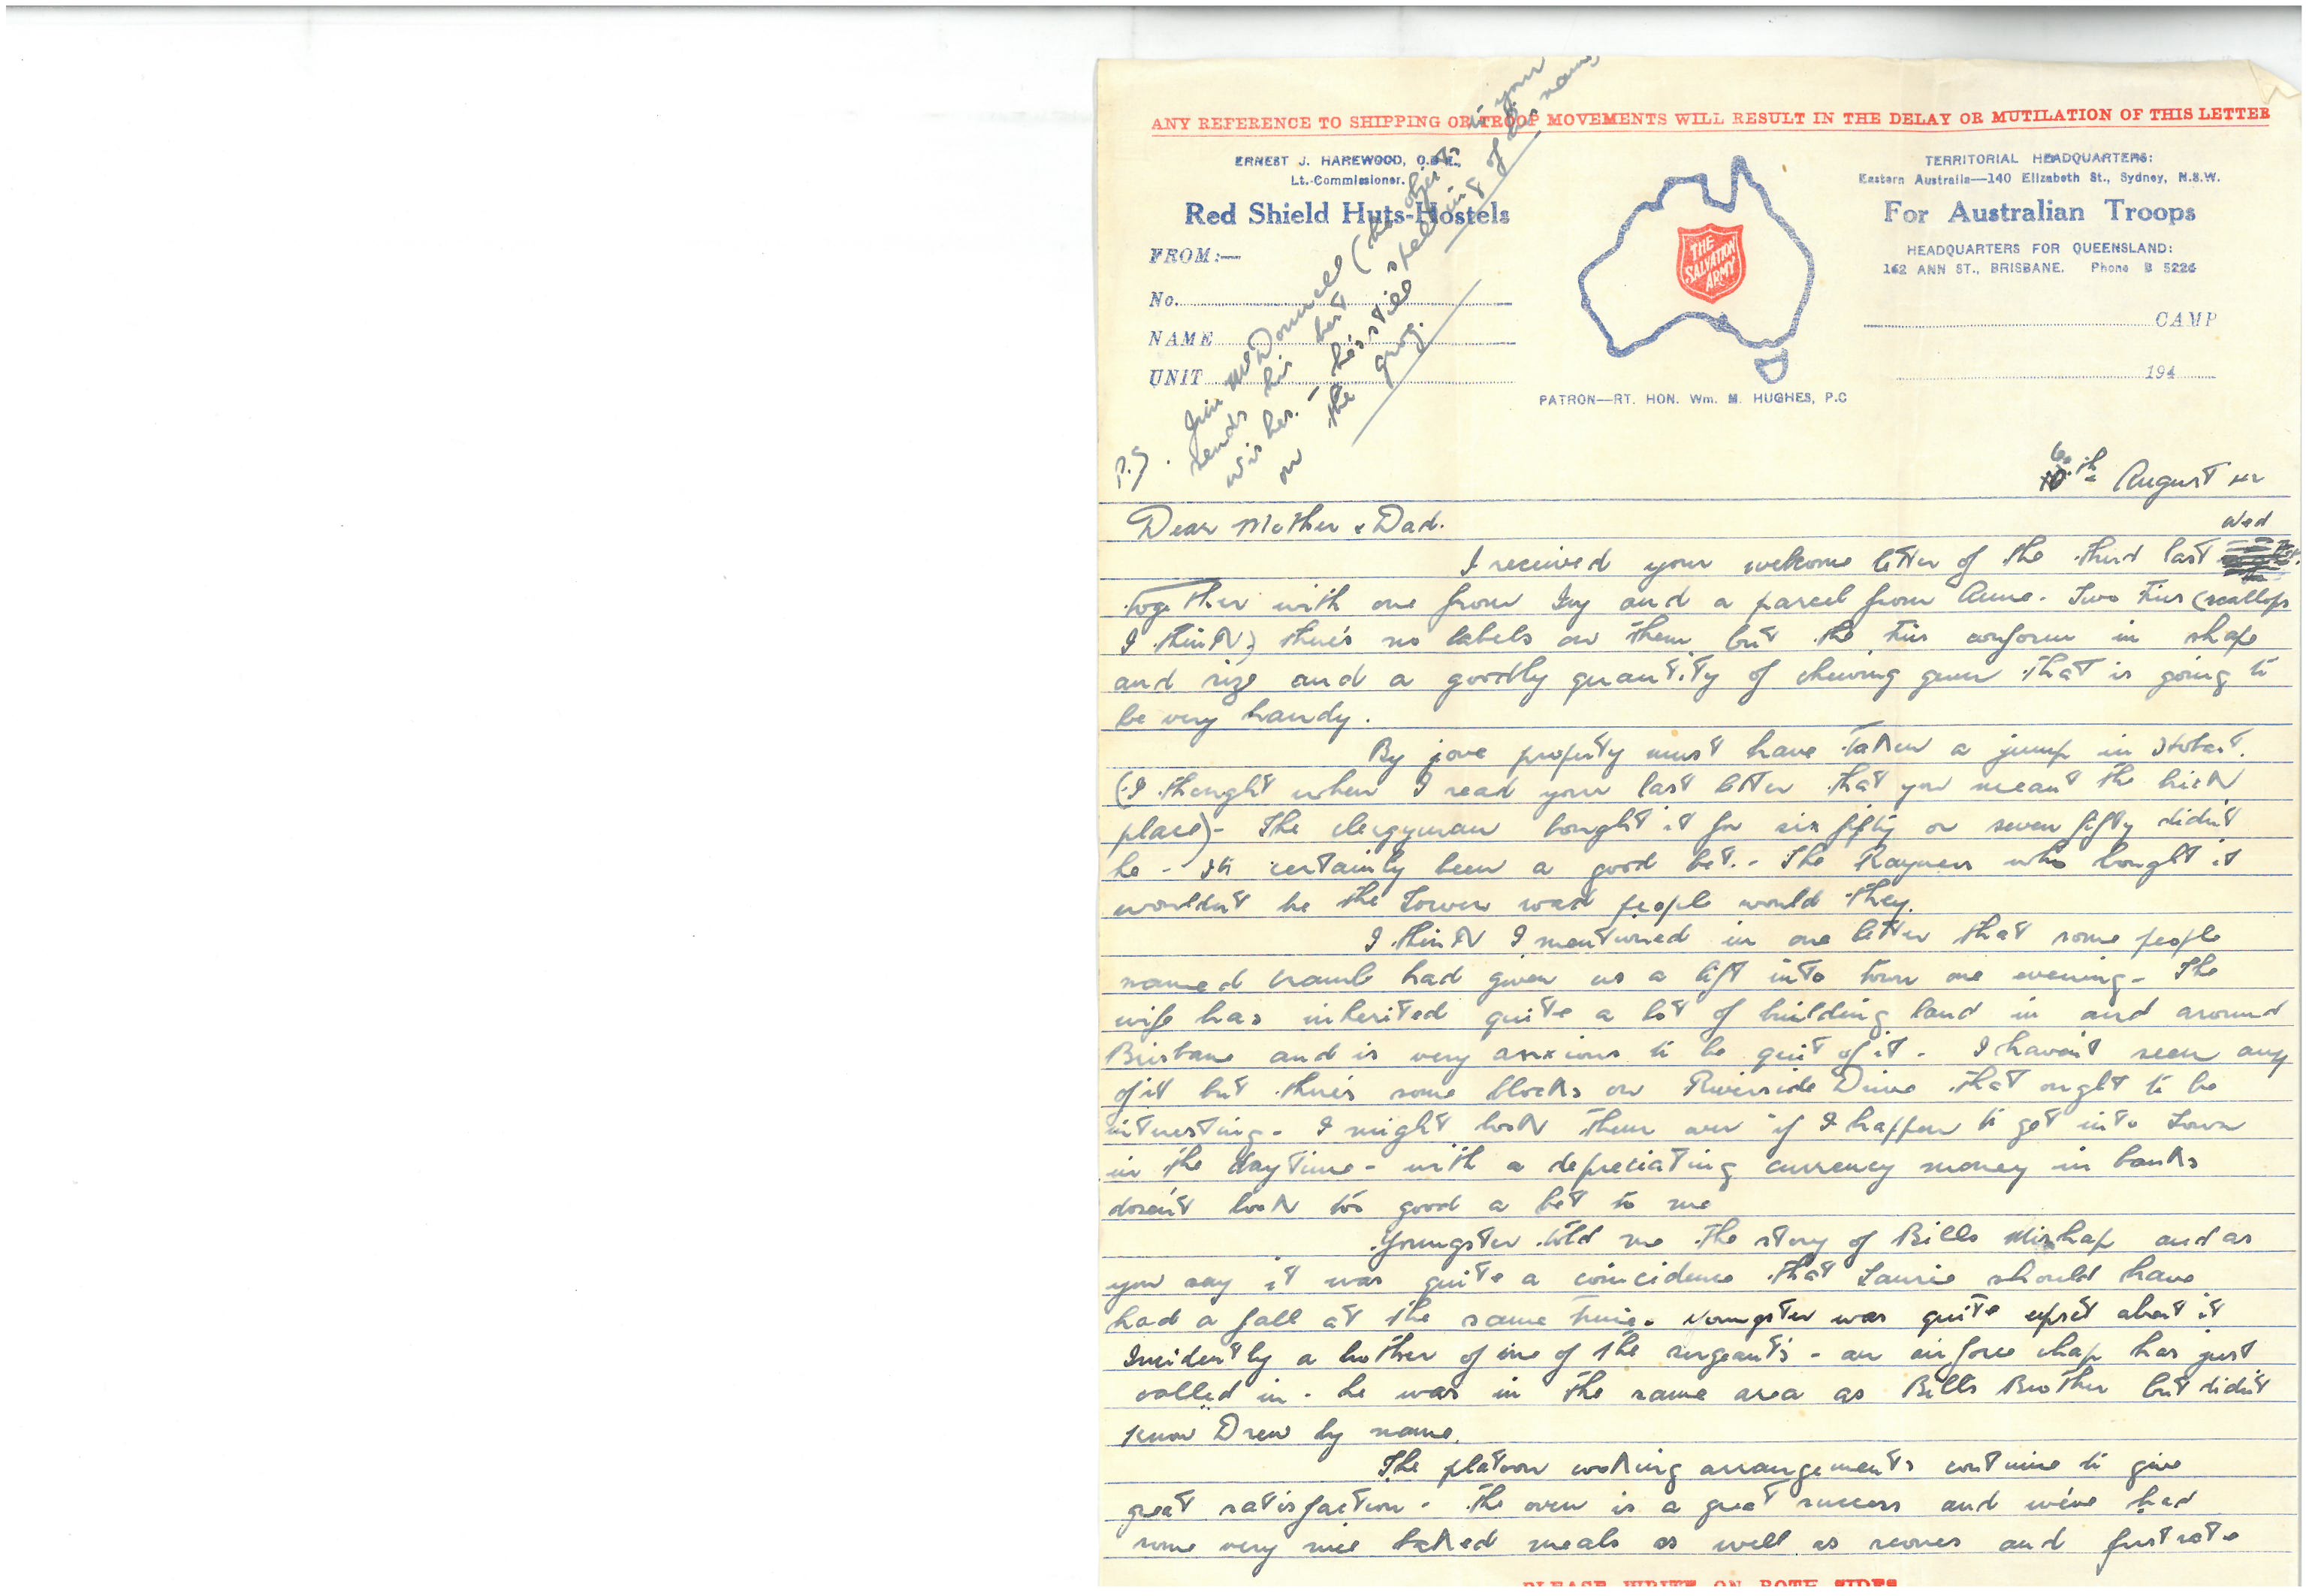 ANY REFERENCE TO SHIPPING OR TROOP MOVEMENTS WILL RESULT IN THE DELAY OR MUTILATION OF THIS LETTER
ERNEST J. HAREWOOD, O.B.E.,
Lt.-Commissioner.
Red Shield Huts-Hostels
FROM:—
No.
NAME
UNIT
THE SALVATION ARMY
PATRON—RT. HON. Wm. M. HUGHES, P.C
TERRITORIAL HEADQUARTERS:
Eastern Australia—140 Elizabeth St., Sydney, N.S.W.
For Australian Troops
HEADQUARTERS FOR QUEENSLAND:
162 ANN ST., BRISBANE. Phone B 5226
CAMP
194
P.S. Jim McDonnell (he objects to your
sends his best spelling of his name)
wishes. - he's still
on the grog.
6th August
Dear Mother & Dad.
Wed
I received your welcome letter of the third last
together with one from Ivy and a parcel from Anne. Two tins (scallops
I think) there's no labels on them but the tins conform in shape
and size and a goodly quantity of chewing gum that is going to
be very handy.
By jove property must have taken a jump in Hobart.
(I thought when I read your last letter that you meant the brick
place)- The clergyman bought it for six fifty or seven fifty didn't
he - its certainly been a good bet. - The Rayners who bought it
wouldn't be the Tower road people would they.
I think I mentioned in one letter that some people
named had given us a lift into town one evening - The
wife has inherited quite a lot of building land in and around
Brisbane and is very anxious to be quit of it - I havn't seen any
of it but there's some blocks on Riverside Drive that ought to be
interesting - I might look them over if I happen to get into Town
in the daytime - with a depreciating currency money in banks
doesn't look too good a bet to me
Youngster told me the story of Bills Mishap and as
you say it was quite a coincidence that Laurie should have
had a fall at the same time. Youngster was quite upset about it
Incidently a brother of one of the sergeants - an airforce chap has just
called in - he was in the same area as Bills Brother but didn't
know Drew by name.
The platoon cooking arrangements continue to give
great satisfaction - The oven is a great success and we've had
some very nice baked meals as well as scones and
PLEASE WRITE ON BOTH SIDES